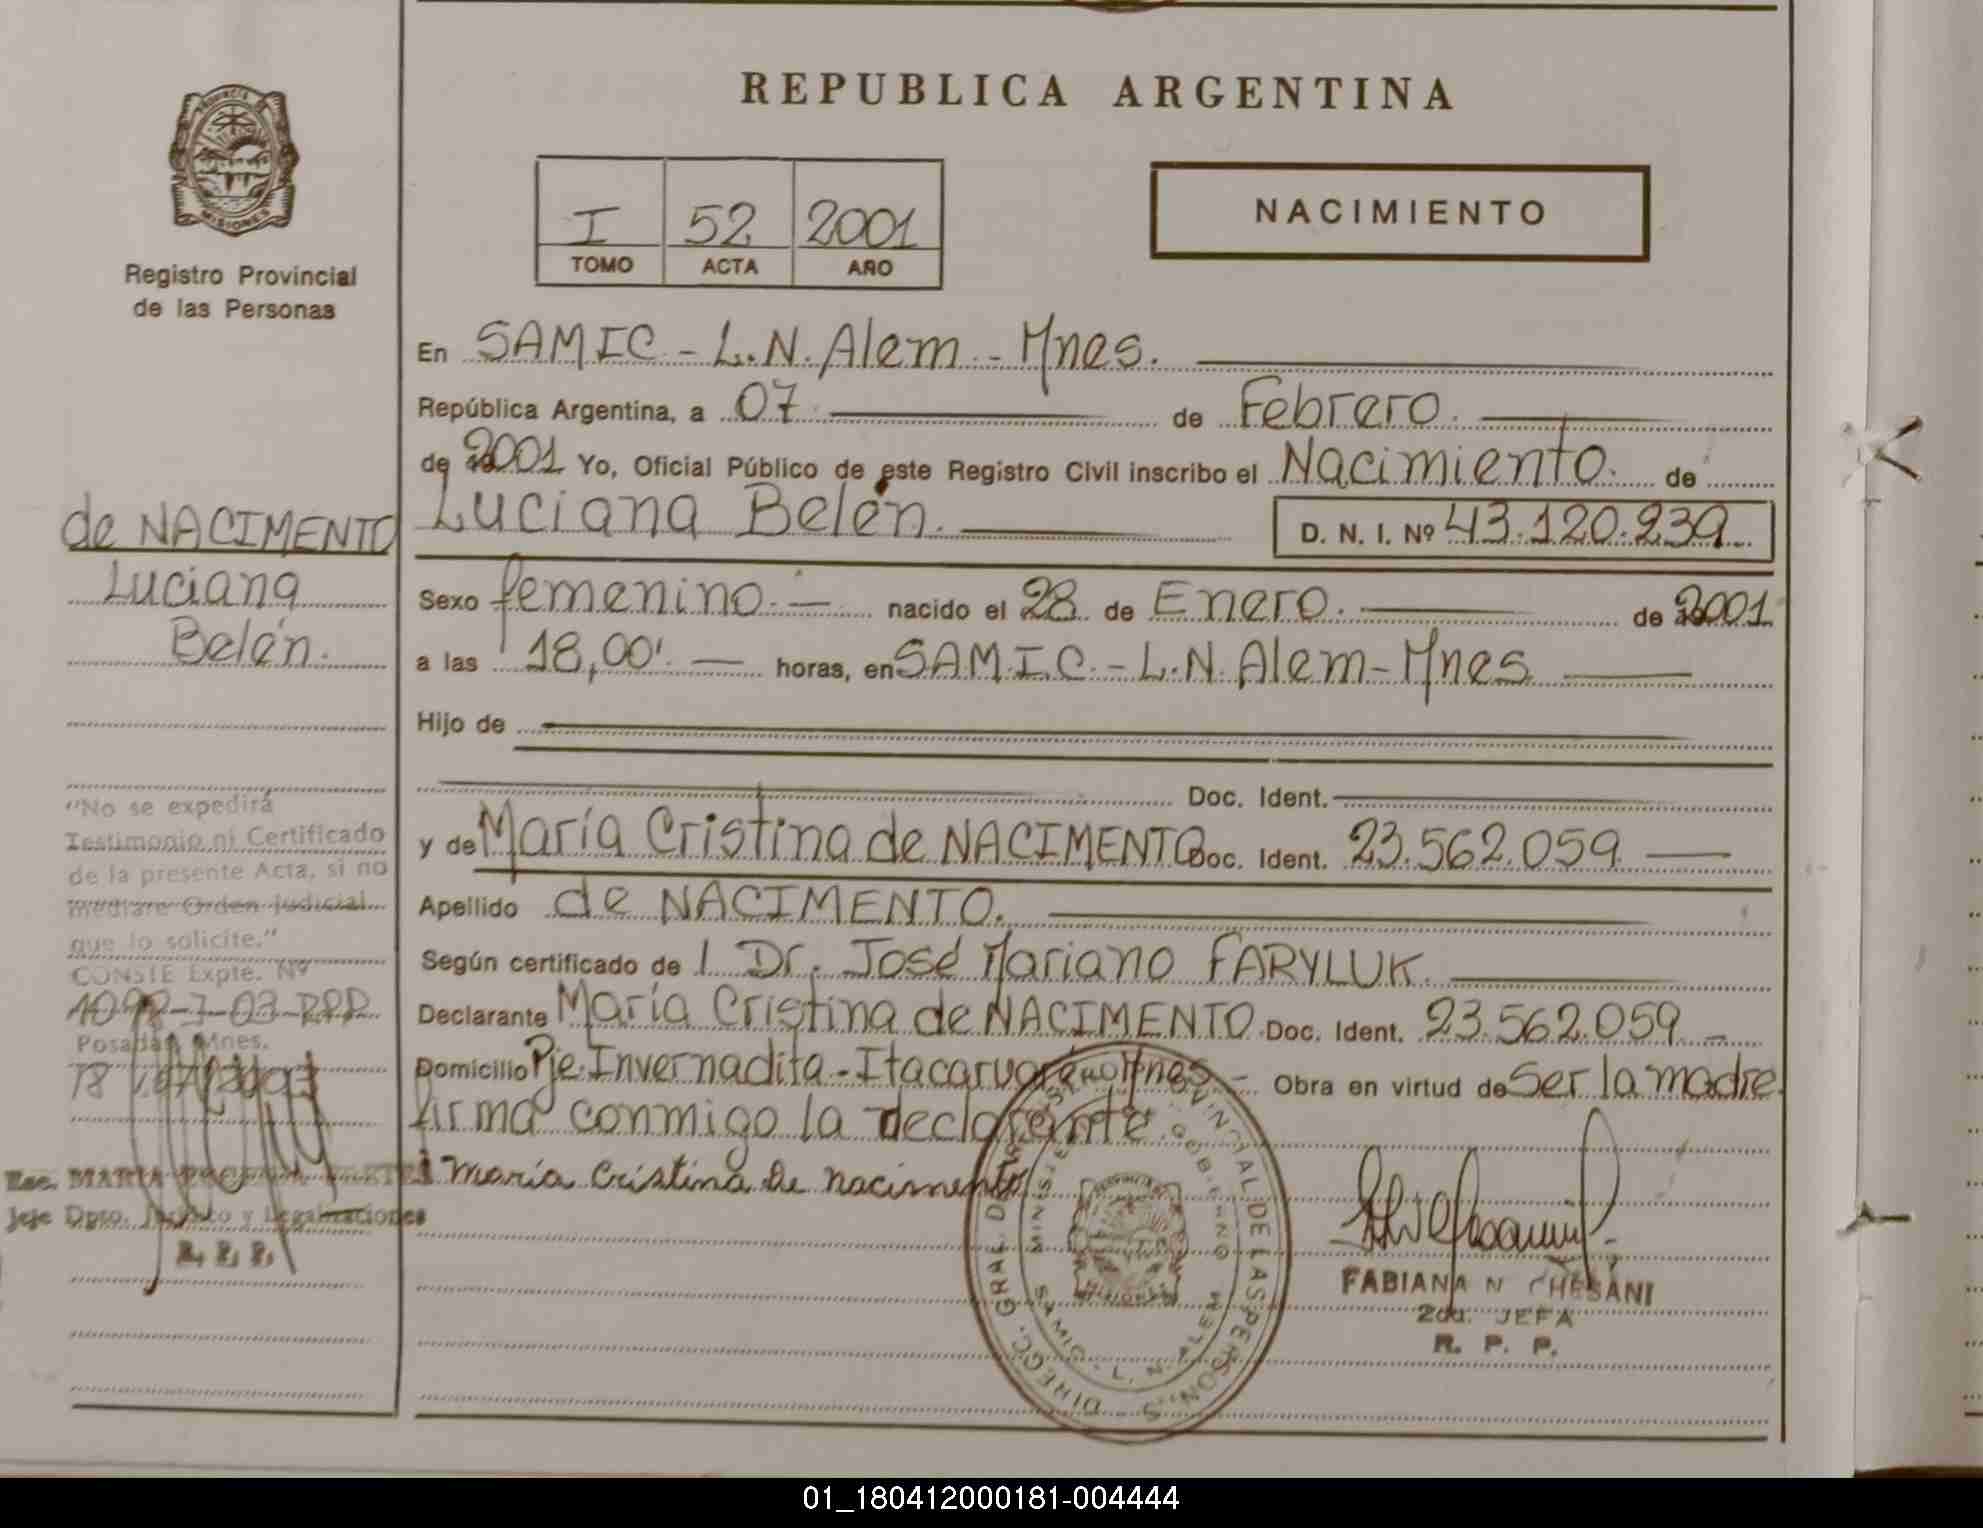 REPUBLICA ARGENTINA
PROVINCIA DE
MISIONES
Registro Provincial
de las Personas
I 52 2001
TOMO ACTA AÑO
NACIMIENTO
En SAMIC - L.N. Alem - Mnes.
República Argentina, a 07 de Febrero.
de 2001 Yo, Oficial Público de este Registro Civil inscribo el Nacimiento. de
Luciana Belén. D. N. I. Nº 43.120.239
Sexo femenino. nacido el 28 de Enero. de 2001
a las 18,00'. horas, en SAM.I.C. - L.N. Alem - Mnes
Hijo de
Doc. Ident.
y de María Cristina de NACIMENTO Doc. Ident. 23.562.059
Apellido de NACIMENTO.
Según certificado de l Dr. José Mariano FARYLUK.
Declarante María Cristina de NACIMENTO. Doc. Ident. 23.562.059
Domicilio Pje. Invernadita - Itacaruaré Mnes - Obra en virtud de Ser la madre
firma conmigo la declarante
María Cristina de nacimento
FABIANA N CHESANI
2da. JEFA
R. P. P.
DIRECC. GRAL. DEL REGISTRO PROVINCIAL DE LAS PERSONAS
MINISTERIO DE GOBIERNO
SAMIC - L. N. ALEM
MISIONES
de NACIMENTO
Luciana
Belén.
"No se expedirá
Testimonio ni Certificado
de la presente Acta, si no
mediare Orden Judicial
que lo solicite."
CONSTE Expte. Nº
Posadas, Mnes.
18
Esc. MARIA
Jefe Dpto. Jurídico y Legalizaciones
R. P. P.
01_180412000181-004444